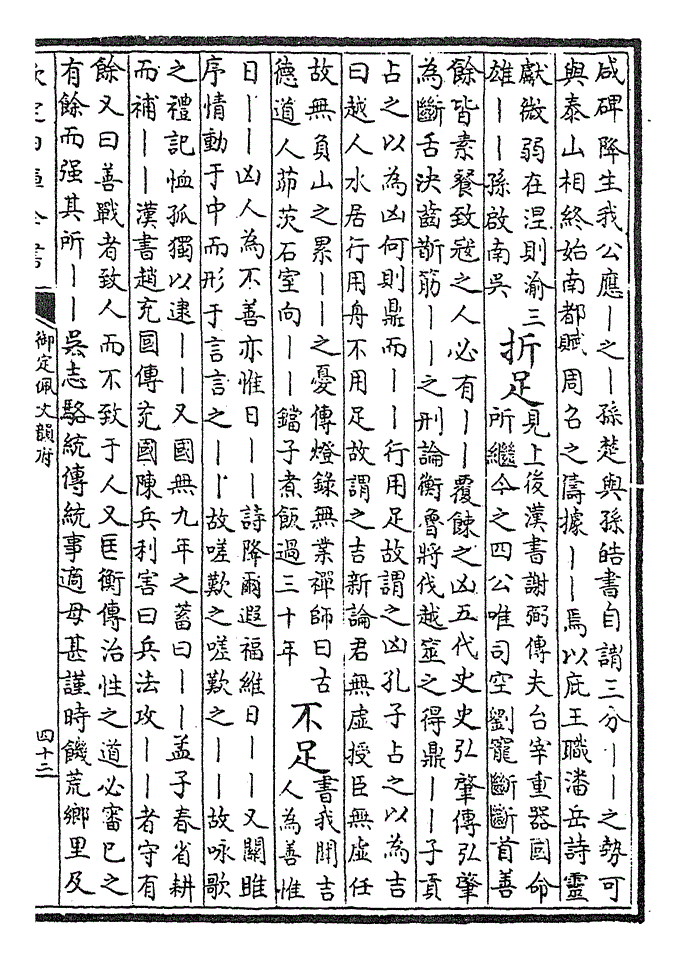 咸碑降生我公應丨之丨孫楚與孫皓書自謂三分丨丨之勢可
與泰山相終始南都賦周召之儔據丨丨焉以庇王職潘岳詩靈
獻微弱在涅則渝三
雄丨丨孫啟南吳
折足
見上後漢書謝弼傳夫台宰重器國命
所繼今之四公唯司空劉寵斷斷首善
餘皆素餐致寇之人必有丨丨覆餗之凶五代史史弘肇傳弘肇
為斷舌決齒斮筋丨丨之刑論衡魯將伐越筮之得鼎丨丨子貢
占之以為凶何則鼎而丨丨行用足故謂之凶孔子占之以為吉
曰越人水居行用舟不用足故謂之吉新論君無虛授臣無虛任
故無負山之累丨丨之憂傳燈錄無業禪師曰古
德道人茆茨石室向丨丨鐺子煮飯過三十年
不足
書我聞吉
人為善惟
日丨丨凶人為不善亦惟日丨丨詩降爾遐福維日丨丨又關雎
序情動于中而形于言言之丨丨故嗟歎之嗟歎之丨丨故咏歌
之禮記恤孤獨以逮丨丨又國無九年之蓄曰丨丨孟子春省耕
而補丨丨漢書趙充國傳充國陳兵利害曰兵法攻丨丨者守有
餘又曰善戰者致人而不致于人又匡衡傳治性之道必審已之
有餘而强其所丨丨吳志駱統傳統事適母甚謹時饑荒鄉里及
欽定四庫全書
御定佩文韻府
四十三